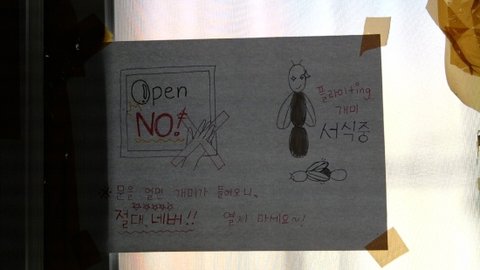 Open
NO!
플라이ting
개미
서식중
※ 문을 열면 개미가 들어오니,
절대 네버!! 열지 마세요~!